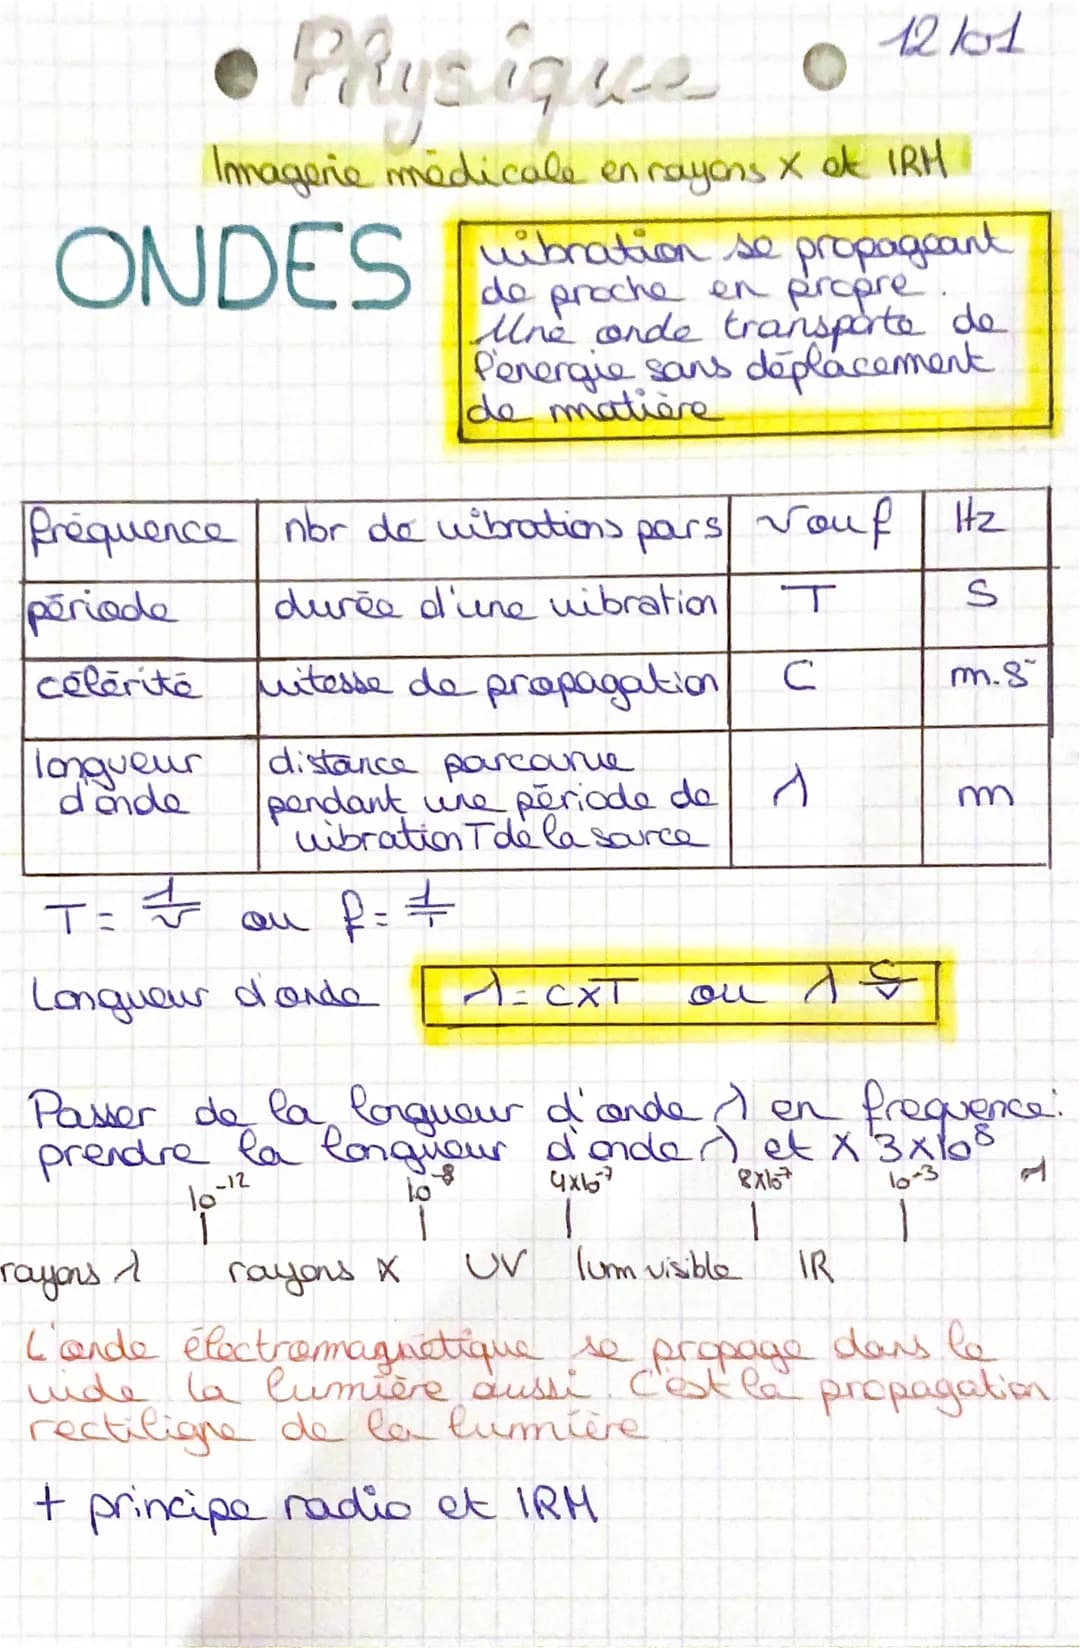 Physique
12/01
Imagerie médicale en rayons X et IRM
ONDES
vibration se propageant
de proche en propre.
Une onde transporte de
l'énergie sans déplacement
de matière
fréquence | nbr de vibrations par s | ν ou f | Hz
période | durée d'une vibration | T | S
célérité | vitesse de propagation | C | m.s⁻
longueur | distance parcourue
d'onde | pendant une période de | λ | m
vibration T de la source
T = 1/ν ou f = 1/T
Longueur d'onde λ = C×T ou λ C/ν
Passer de la longueur d'onde λ en frequence :
prendre la longueur d'onde λ et × 3×10⁸
10⁻¹² 10⁻⁸ 4×10⁻⁷ 8×10⁻⁷ 10⁻³ λ
rayons λ rayons X UV lum visible IR
L'onde électromagnétique se propage dans le
vide la lumière aussi. C'est la propagation
rectiligne de la lumière
+ principe radio et IRM